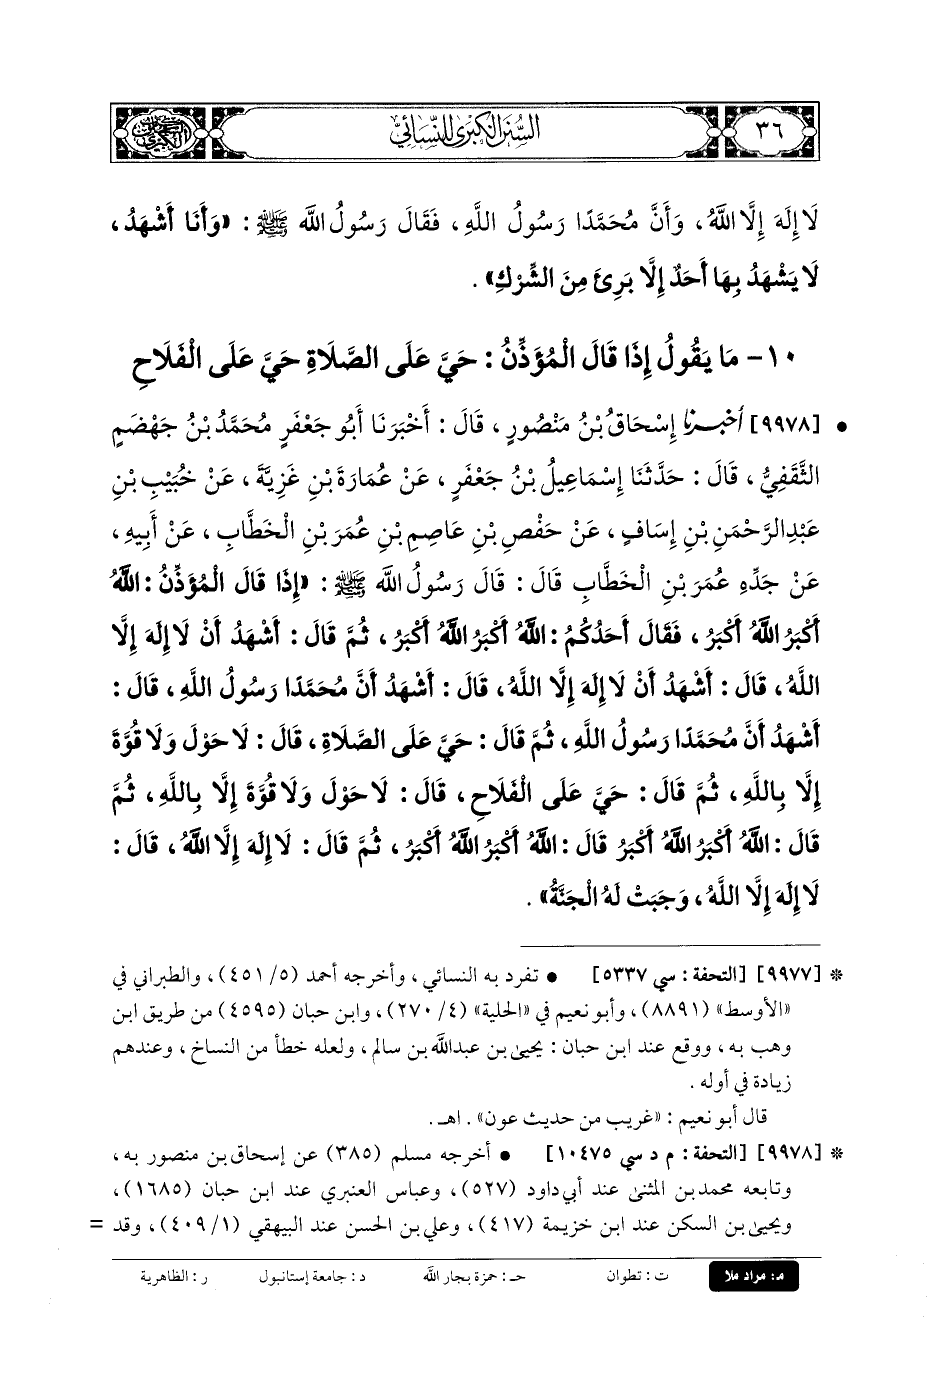 ٣٦
السُّنَنُ الكُبْرَى لِلنَّسَائِيِّ
لَا إِلَهَ إِلَّا اللَّهُ، وَأَنَّ مُحَمَّدًا رَسُولُ اللَّهِ، فَقَالَ رَسُولُ اللَّه ﷺ : «وَأَنَا أَشْهَدُ،
لَا يَشْهَدُ بِهَا أَحَدٌ إِلَّا بَرِئَ مِنَ الشِّرْكِ» .
١٠- مَا يَقُولُ إِذَا قَالَ الْمُؤَذِّنُ : حَيَّ عَلَى الصَّلَاةِ حَيَّ عَلَى الْفَلَاحِ
• [٩٩٧٨] أخبرنا إِسْحَاقُ بْنُ مَنْصُورٍ، قَالَ : أَخْبَرَنَا أَبُو جَعْفَرٍ مُحَمَّدُ بْنُ جَهْضَمٍ
الثَّقَفِيُّ، قَالَ : حَدَّثَنَا إِسْمَاعِيلُ بْنُ جَعْفَرٍ، عَنْ عُمَارَةَ بْنِ غَزِيَّةَ، عَنْ خُبَيْبِ بْنِ
عَبْدِ الرَّحْمَنِ بْنِ إِسَافٍ، عَنْ حَفْصِ بْنِ عَاصِمِ بْنِ عُمَرَ بْنِ الْخَطَّابِ، عَنْ أَبِيهِ،
عَنْ جَدِّهِ عُمَرَ بْنِ الْخَطَّابِ قَالَ : قَالَ رَسُولُ اللَّه ﷺ : «إِذَا قَالَ الْمُؤَذِّنُ : اللَّهُ
أَكْبَرُ اللَّهُ أَكْبَرُ، فَقَالَ أَحَدُكُمُ : اللَّهُ أَكْبَرُ اللَّهُ أَكْبَرُ، ثُمَّ قَالَ : أَشْهَدُ أَنْ لَا إِلَهَ إِلَّا
اللَّهُ، قَالَ : أَشْهَدُ أَنْ لَا إِلَهَ إِلَّا اللَّهُ، قَالَ : أَشْهَدُ أَنَّ مُحَمَّدًا رَسُولُ اللَّهِ، قَالَ :
أَشْهَدُ أَنَّ مُحَمَّدًا رَسُولُ اللَّهِ، ثُمَّ قَالَ : حَيَّ عَلَى الصَّلَاةِ، قَالَ : لَا حَوْلَ وَلَا قُوَّةَ
إِلَّا بِاللَّهِ، ثُمَّ قَالَ : حَيَّ عَلَى الْفَلَاحِ، قَالَ : لَا حَوْلَ وَلَا قُوَّةَ إِلَّا بِاللَّهِ، ثُمَّ
قَالَ : اللَّهُ أَكْبَرُ اللَّهُ أَكْبَرُ قَالَ : اللَّهُ أَكْبَرُ اللَّهُ أَكْبَرُ، ثُمَّ قَالَ : لَا إِلَهَ إِلَّا اللَّهُ، قَالَ :
لَا إِلَهَ إِلَّا اللَّهُ، وَجَبَتْ لَهُ الْجَنَّةُ» .
* [٩٩٧٧] [التحفة : سي ٥٣٣٧] • تفرد به النسائي، وأخرجه أحمد (٥/ ٤٥١)، والطبراني في
«الأوسط» (٨٨٩١)، وأبو نعيم في «الحلية» (٤/ ٢٧٠)، وابن حبان (٤٥٩٥) من طريق ابن
وهب به، ووقع عند ابن حبان : يحيى بن عبدالله بن سالم، ولعله خطأ من النساخ، وعندهم
زيادة في أوله .
قال أبو نعيم : «غريب من حديث عون» . اهـ .
* [٩٩٧٨] [التحفة : م د سي ١٠٤٧٥] • أخرجه مسلم (٣٨٥) عن إسحاق بن منصور به،
وتابعه محمد بن المثنى عند أبي داود (٥٢٧)، وعباس العنبري عند ابن حبان (١٦٨٥)،
ويحيى بن السكن عند ابن خزيمة (٤١٧)، وعلي بن الحسن عند البيهقي (١/ ٤٠٩)، وقد =
م: مراد ملا ت : تطوان حـ : حمزة بجار الله د : جامعة إستانبول ر : الظاهرية